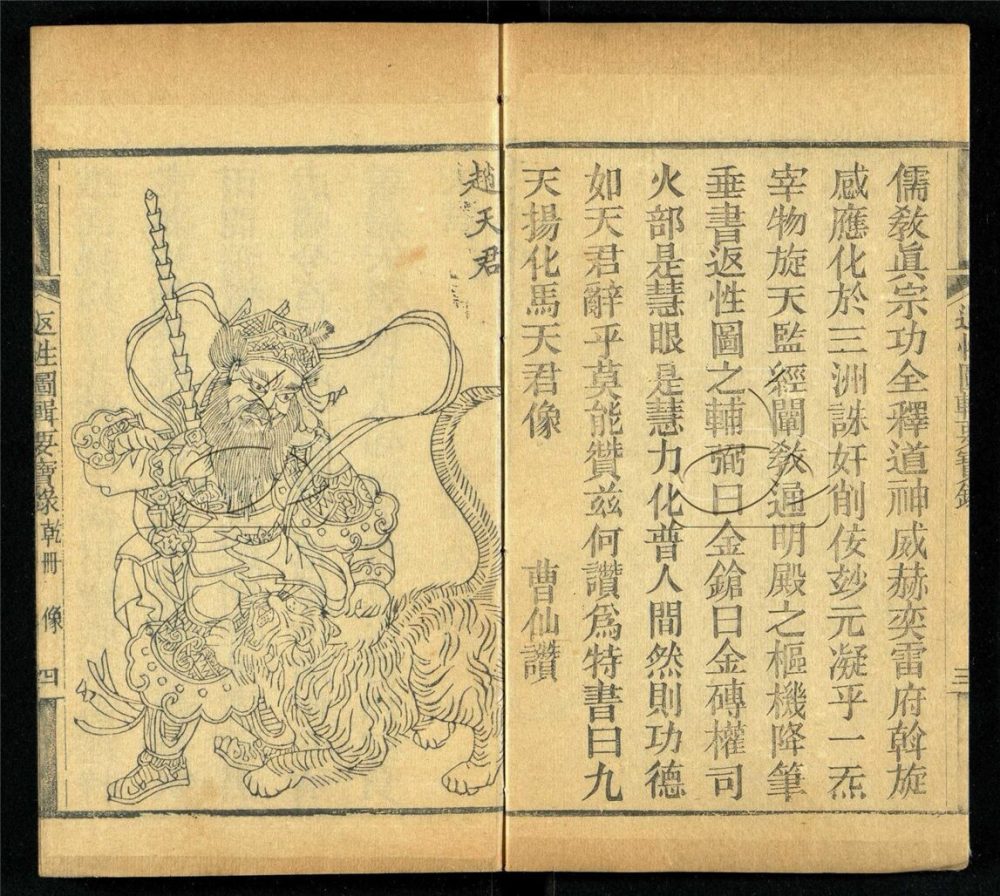 儒敎眞宗功全釋道神威赫奕雷府斡旋
感應化於三洲誅奸削佞玅元凝乎一炁
宰物旋天監經闡敎通明殿之樞機降筆
垂書返性圖之輔弼曰金鎗曰金磚權司
火部是慧眼是慧力化普人間然則功德
如天君辭乎莫能贊玆何讚爲特書曰九
天揚化馬天君像 曹仙讚
趙天君
返性圖輯要寶錄 乾冊 像 四